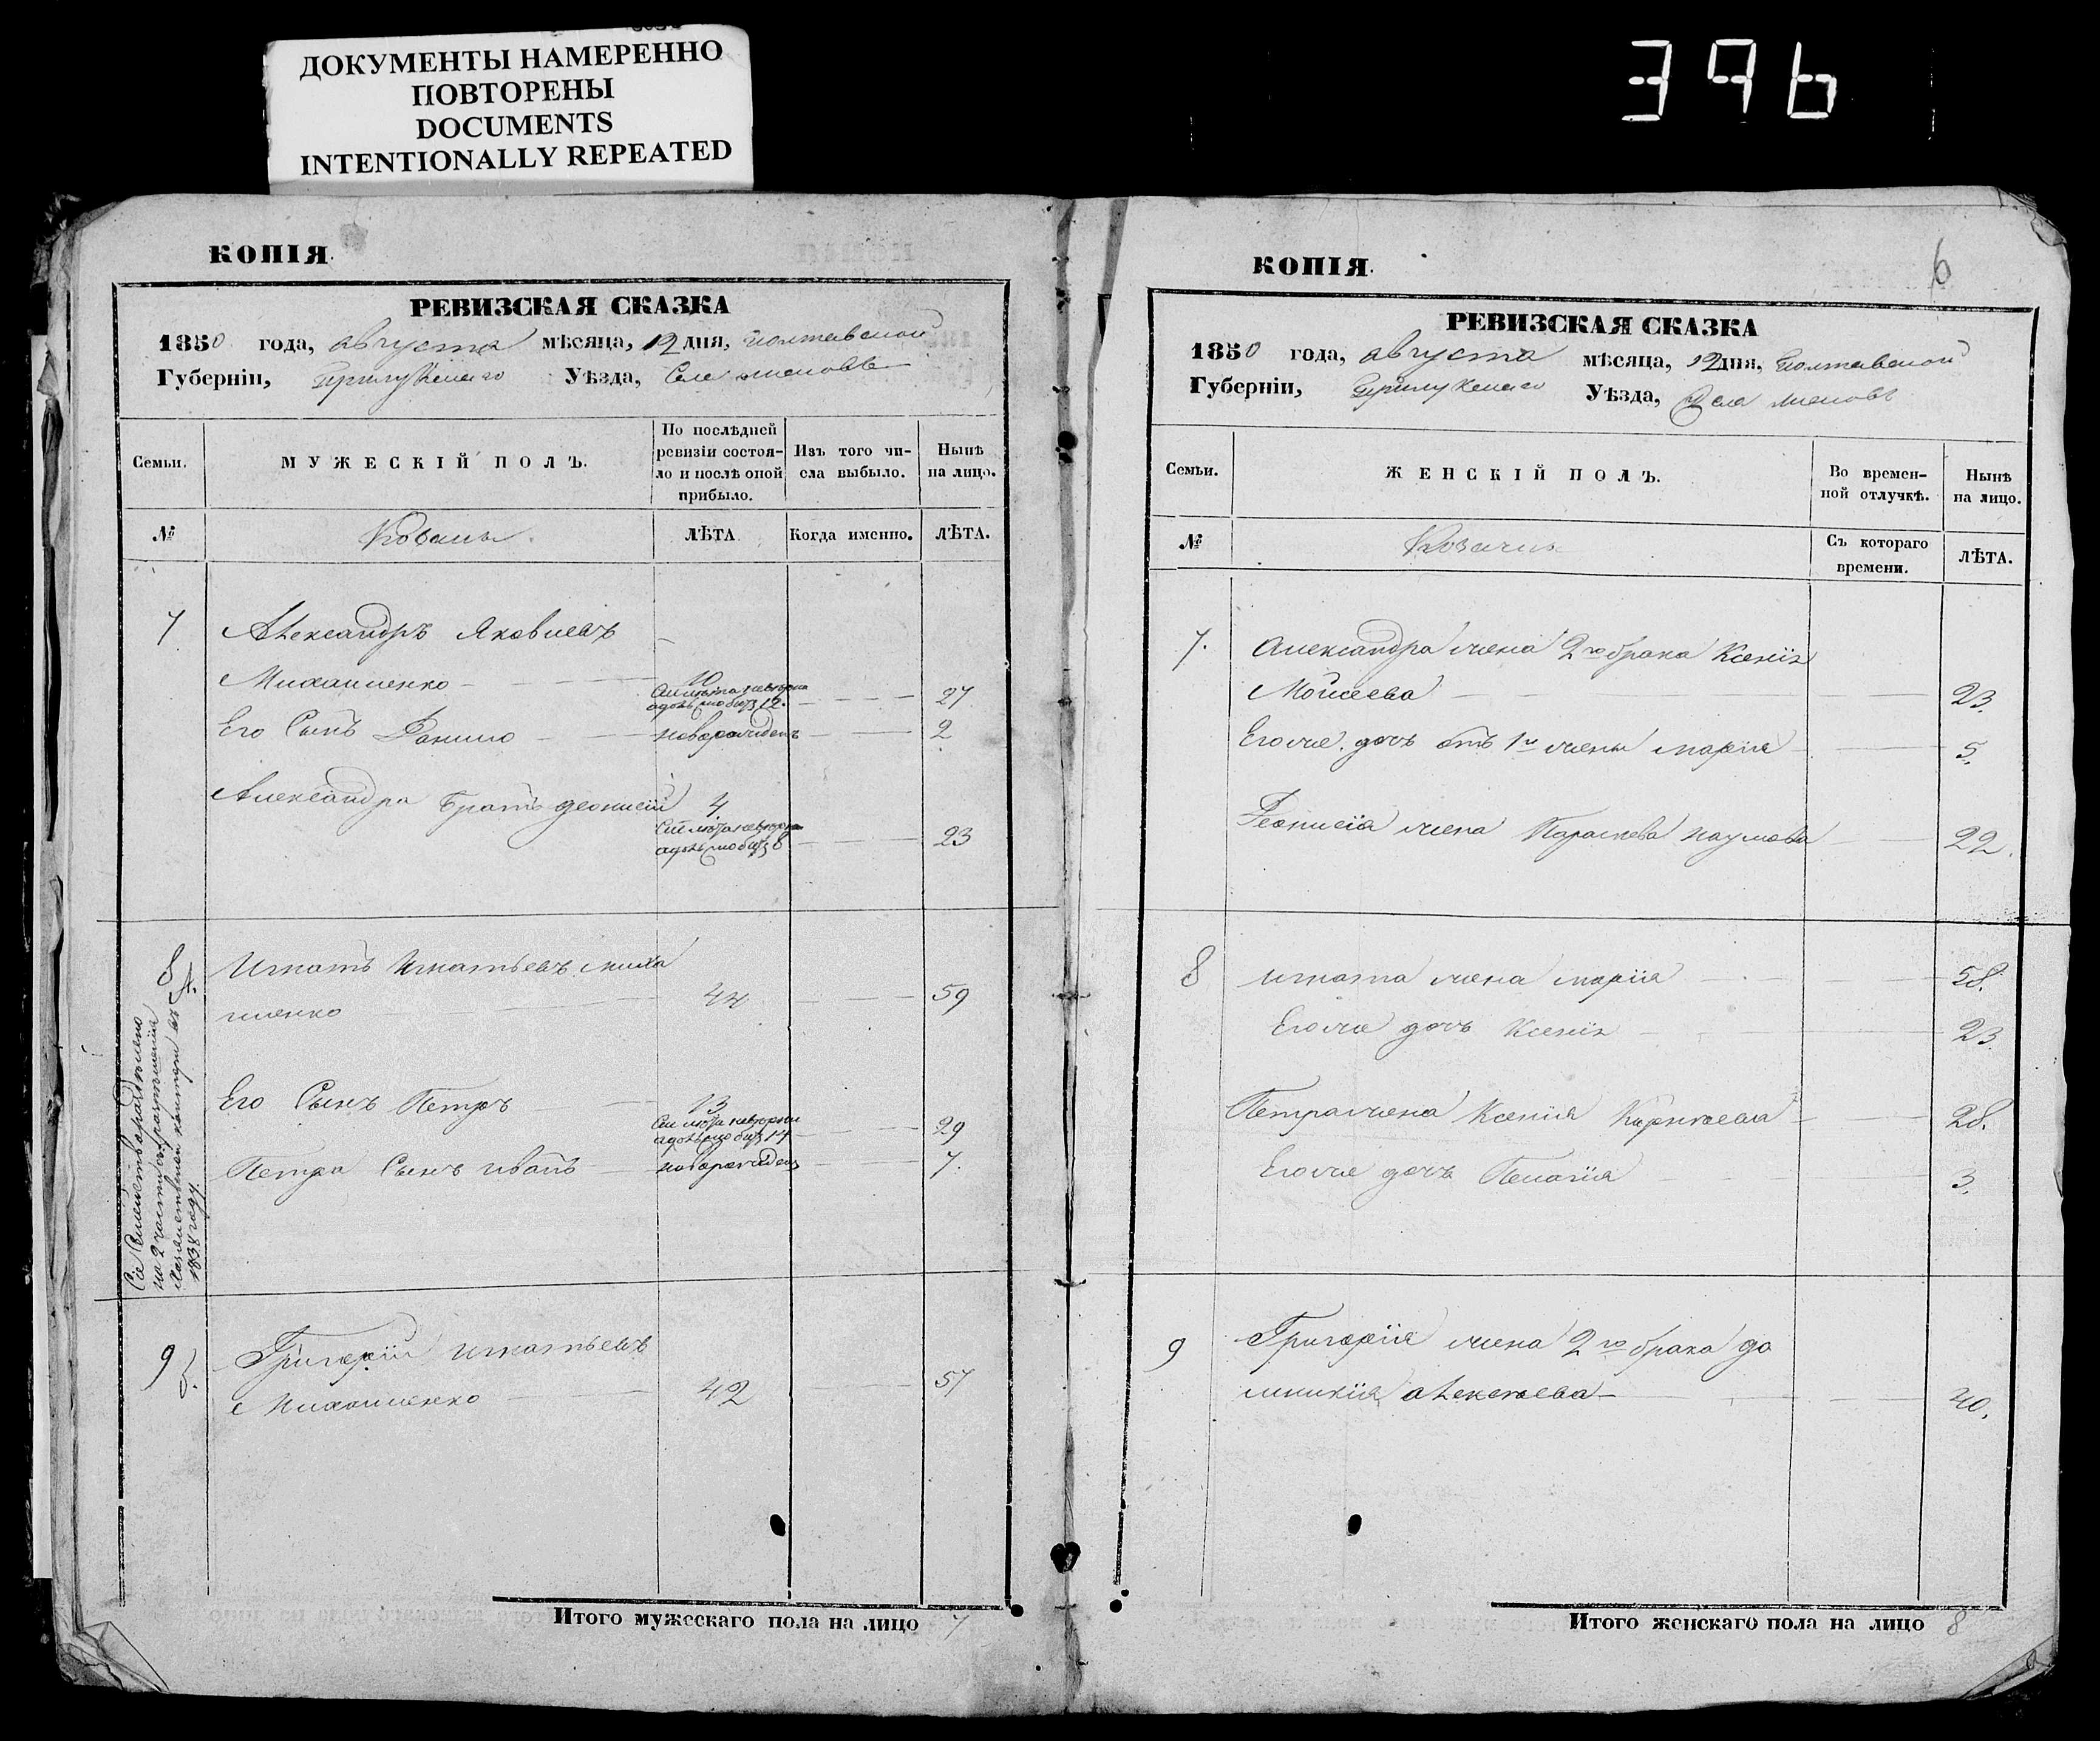 ДОКУМЕНТЫ НАМЕРЕННО
ПОВТОРЕНЫ
DOCUMENTS
INTENTIONALLY REPEATED
396
КОПІЯ.
РЕВИЗСКАЯ СКАЗКА
1850 года, августа мѣсяца, 12 дня, Полтавской
Губерніи, Прилуцкаго Уѣзда, Села
Семьи.
МУЖЕСКІЙ ПОЛЪ.
По послѣдней
ревизіи состоя-
ло и послѣ оной
прибыло.
Изъ того чи-
сла выбыло.
Нынѣ
на лицо.
№
ЛѢТА.
Когда именно.
ЛѢТА.
7 Александръ Яковлевъ
Михайленко 10 27
Его Сынъ Данило новорожденъ 2
Александра Братъ Феонисій 4
23
8 А. Игнатъ Игнатьевъ Миха
йленко 44 59
Его Сынъ Петръ 13
29
Петра Сынъ Иванъ новорожденъ 7.
Сіе Семейство раздѣлено
на 2 части съ разрѣшенія
Хозяйственной конторы въ
1838 году.
9 Б. Григорій Игнатьевъ
Михайленко 42 57
Итого мужескаго пола на лицо 7
6
КОПІЯ.
РЕВИЗСКАЯ СКАЗКА
1850 года, августа мѣсяца, 12 дня, Полтавской
Губерніи, Прилуцкаго Уѣзда, Села
Семьи.
ЖЕНСКІЙ ПОЛЪ.
Во времен-
ной отлучкѣ.
Нынѣ
на лицо.
№
Съ котораго
времени.
ЛѢТА.
7. Александра жена 2го брака Ксенія
Мойсеева 23.
Егоже дочь отъ 1й жены Марія 5.
Феонисія жена Параскева Наумова 22.
8 Игната жена Марія 58.
Егоже дочь Ксенія 23.
Петра жена Ксенія 28.
Егоже дочь Пелагія 3.
9 Григорія жена 2го брака До
мникія Алексѣева 40.
Итого женскаго пола на лицо 8